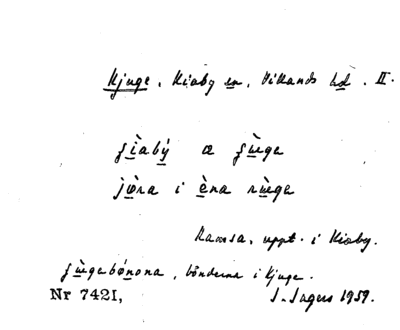 Kjuge, Kiaby sn, Villands hd. II.
ʃìabý æ ʃùge
jøra i èna rùge
Ramsa, uppt. i Kiaby.
ʃùgebónona, bönderna i Kjuge.
Nr 7421, I. Ingers 1959.